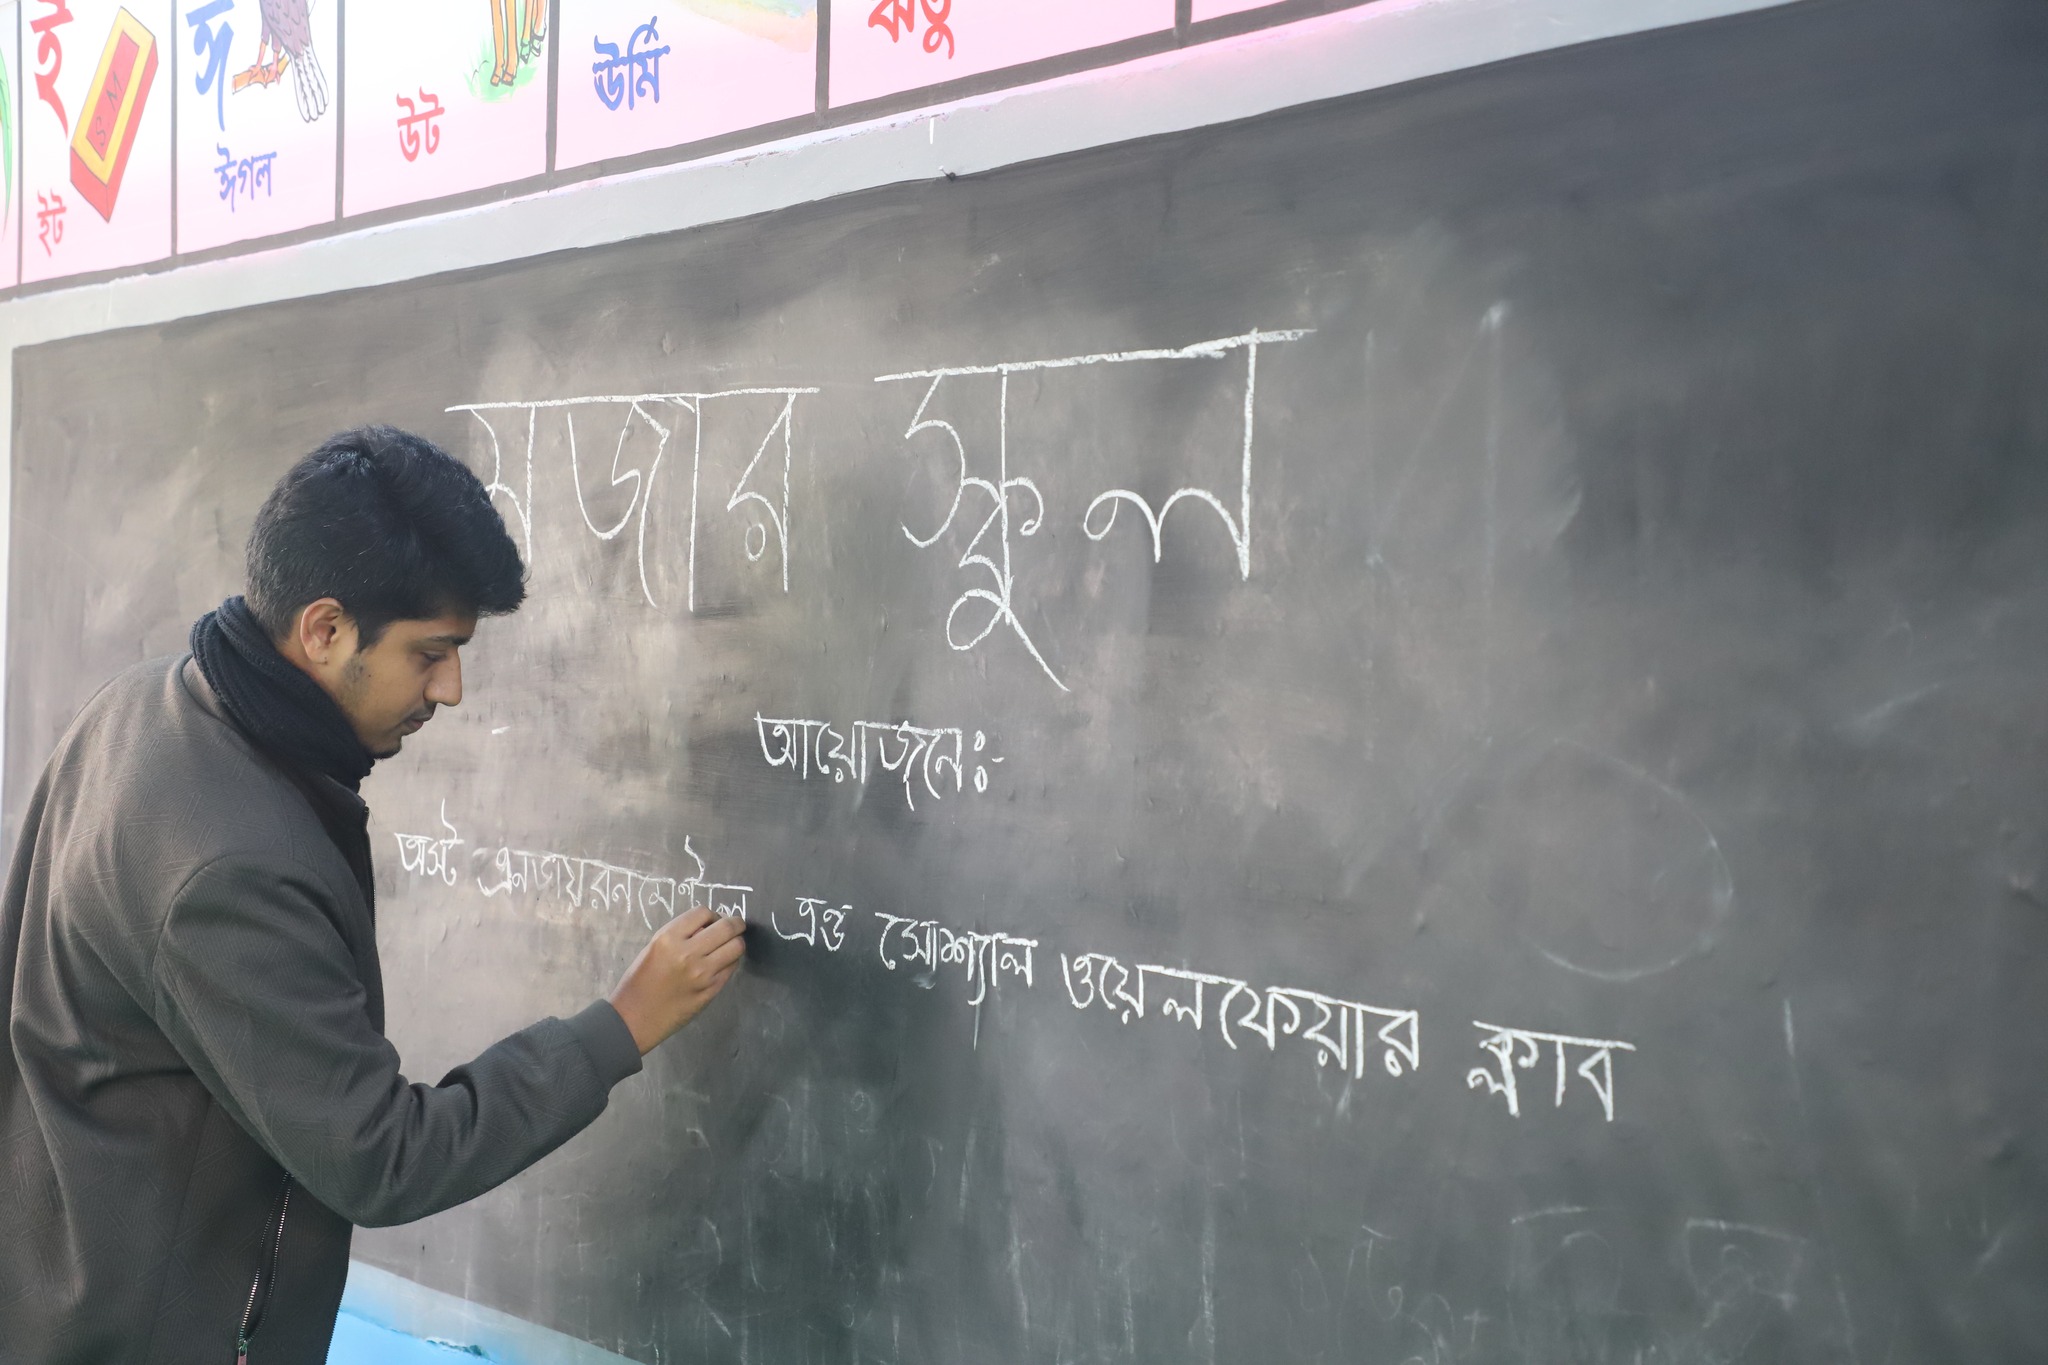 ই
ইট
MS
ঈ
ঈগল
উট
ঊর্মি
ঋতু
মজার স্কুল
আয়োজনেঃ-
অস্ট এনভায়রনমেন্টাল এন্ড সোশ্যাল ওয়েলফেয়ার ক্লাব